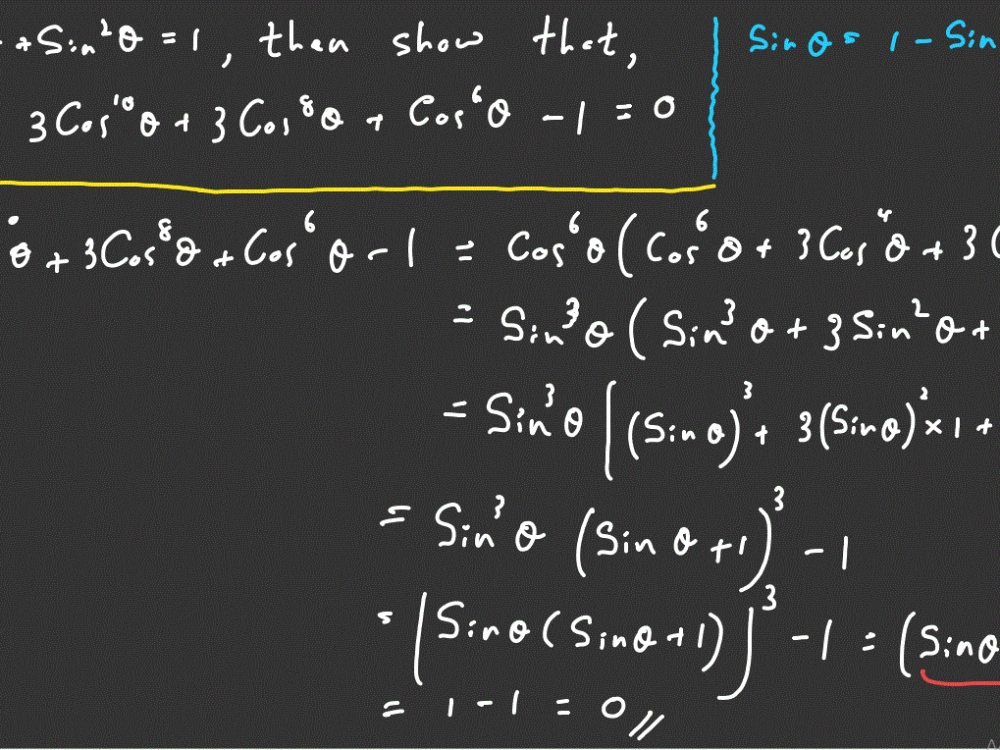 +Sin²θ = 1, then show that,
3Cos¹⁰θ + 3Cos⁸θ + Cos⁶θ - 1 = 0
Sinθ = 1 - Sin
θ + 3Cos⁸θ + Cos⁶θ - 1 = Cos⁶θ(Cos⁶θ + 3Cos⁴θ + 3
= Sin³θ(Sin³θ + 3Sin²θ +
= Sin³θ[(Sinθ)³ + 3(Sinθ)² × 1 +
= Sin³θ (Sinθ + 1)³ - 1
= [Sinθ(Sinθ+1)]³ - 1 = (Sinθ
= 1 - 1 = 0 //